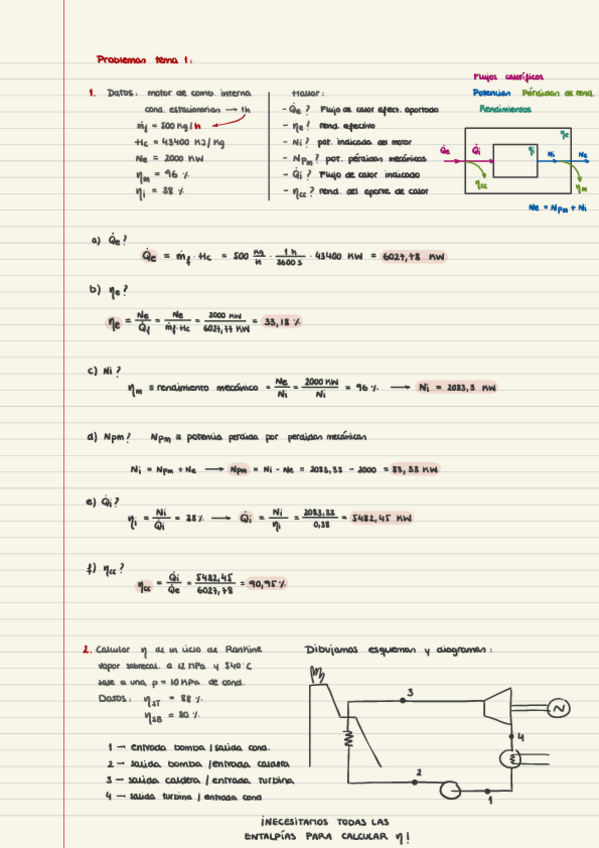 Problemas tema 1:
1. Datos: motor de comb. interna
cond. estacionarias → 1h
ṁf = 500 Kg/h
Hc = 43400 KJ/Kg
Ne = 2000 KW
ηm = 96 %
ηi = 38 %
Hallar:
- Q̇e? Flujo de calor efect. aportado
- ηe? rend. efectivo
- Ni? pot. indicada del motor
- Npm? pot. pérdidas mecánicas
- Q̇i? Flujo de calor indicado
- ηcc? rend. del aporte de calor
Flujos caloríficos
Potencias Pérdidas de rend.
Rendimientos
ηe
Q̇e Q̇i ηi Ni Ne
ηcc ηm
Ne = Npm + Ni
a) Q̇e?
Q̇e = ṁf · Hc = 500 Kg/h · 1h/3600 s · 43400 KW = 6027,78 KW
b) ηe?
ηe = Ne/Q̇f = Ne/ṁf·Hc = 2000 KW/6027,77 KW = 33,18 %
c) Ni?
ηm ≡ rendimiento mecánico = Ne/Ni = 2000 KW/Ni = 96 % → Ni = 2083,3 KW
d) Npm? Npm ≡ potencia perdida por perdidas mecánicas
Ni = Npm + Ne → Npm = Ni - Ne = 2083,33 - 2000 = 83,33 KW
e) Q̇i?
ηi = Ni/Q̇i = 38 % → Q̇i = Ni/ηi = 2083,33/0,38 = 5482,45 KW
f) ηcc?
ηcc = Q̇i/Q̇e = 5482,45/6027,78 = 90,95 %
2. Calcular η de un ciclo de Rankine
vapor sobrecal. a 12 MPa y 540°C
sale a una p = 10 KPa de cond.
Datos: ηsT = 88 %
ηsB = 80 %
1 → entrada bomba / salida cond.
2 → salida bomba / entrada caldera
3 → salida caldera / entrada turbina
4 → salida turbina / entrada cond
Dibujamos esquemas y diagramas:
3
4
2
1
¡NECESITAMOS TODAS LAS
ENTALPÍAS PARA CALCULAR η!